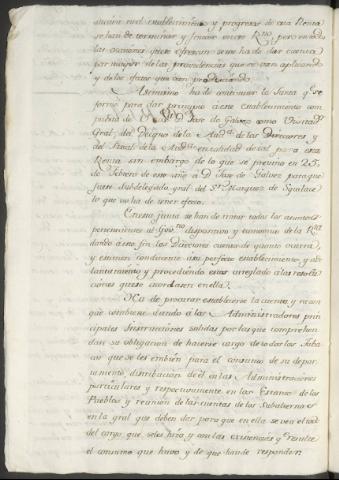 sucion en el establecimiento y progresos de esta Renta
se han de terminar y fenecer en ese Rno, pero en todos
las ocasiones que se ofrezcan se me ha de dar cuenta
por mayor de las providencias que se van aplicando
y de los efectos que van produciendo.
Asimismo ha de continuar la Junta qe se
formó para dar principio a este establecimiento com
puesta de D. Jose de Galvez como Visitador
Gral, del Decano de la Auda de los Directores y
del Fiscal de la Auda en calidad de tal para esta
Renta sin embargo de lo que se previno en 25,
de Febrero de este año á D Jose de Galvez para que
fuese Subdelegado gral del Sr Marques de Squilace
lo que no ha de tener efecto.
En esta Junta se han de tratar todos los asuntos
pertenecientes al Govno dispositivo y economico de la Rta
dando á este fin los Directores cuenta de quanto ocurra,
y estimen conducente á su perfecto establecimiento, y ade
lantamiento y procediendo estos arreglado á las resolu
ciones que se acordasen en ella.
Ha de procurar establecerse la cuenta, y razon
que combiene dando á las Administradores prin
cipales Instrucciones solidas por las que comprehen
dan su obligacion de hacerse cargo de todos los Taba
cos que se les embien para el consumo de su depar
tamento distribucion de el en las Administraciones
particulares y respectivamente en los Estancos de los
Pueblos y reunion de las cuentas de los Subalternos
en la gral que deben dar para que en ella se vea el todo
del cargo, que se les hizo y con las existencias qe resulte
el consumo que huvo y de que han de responder.